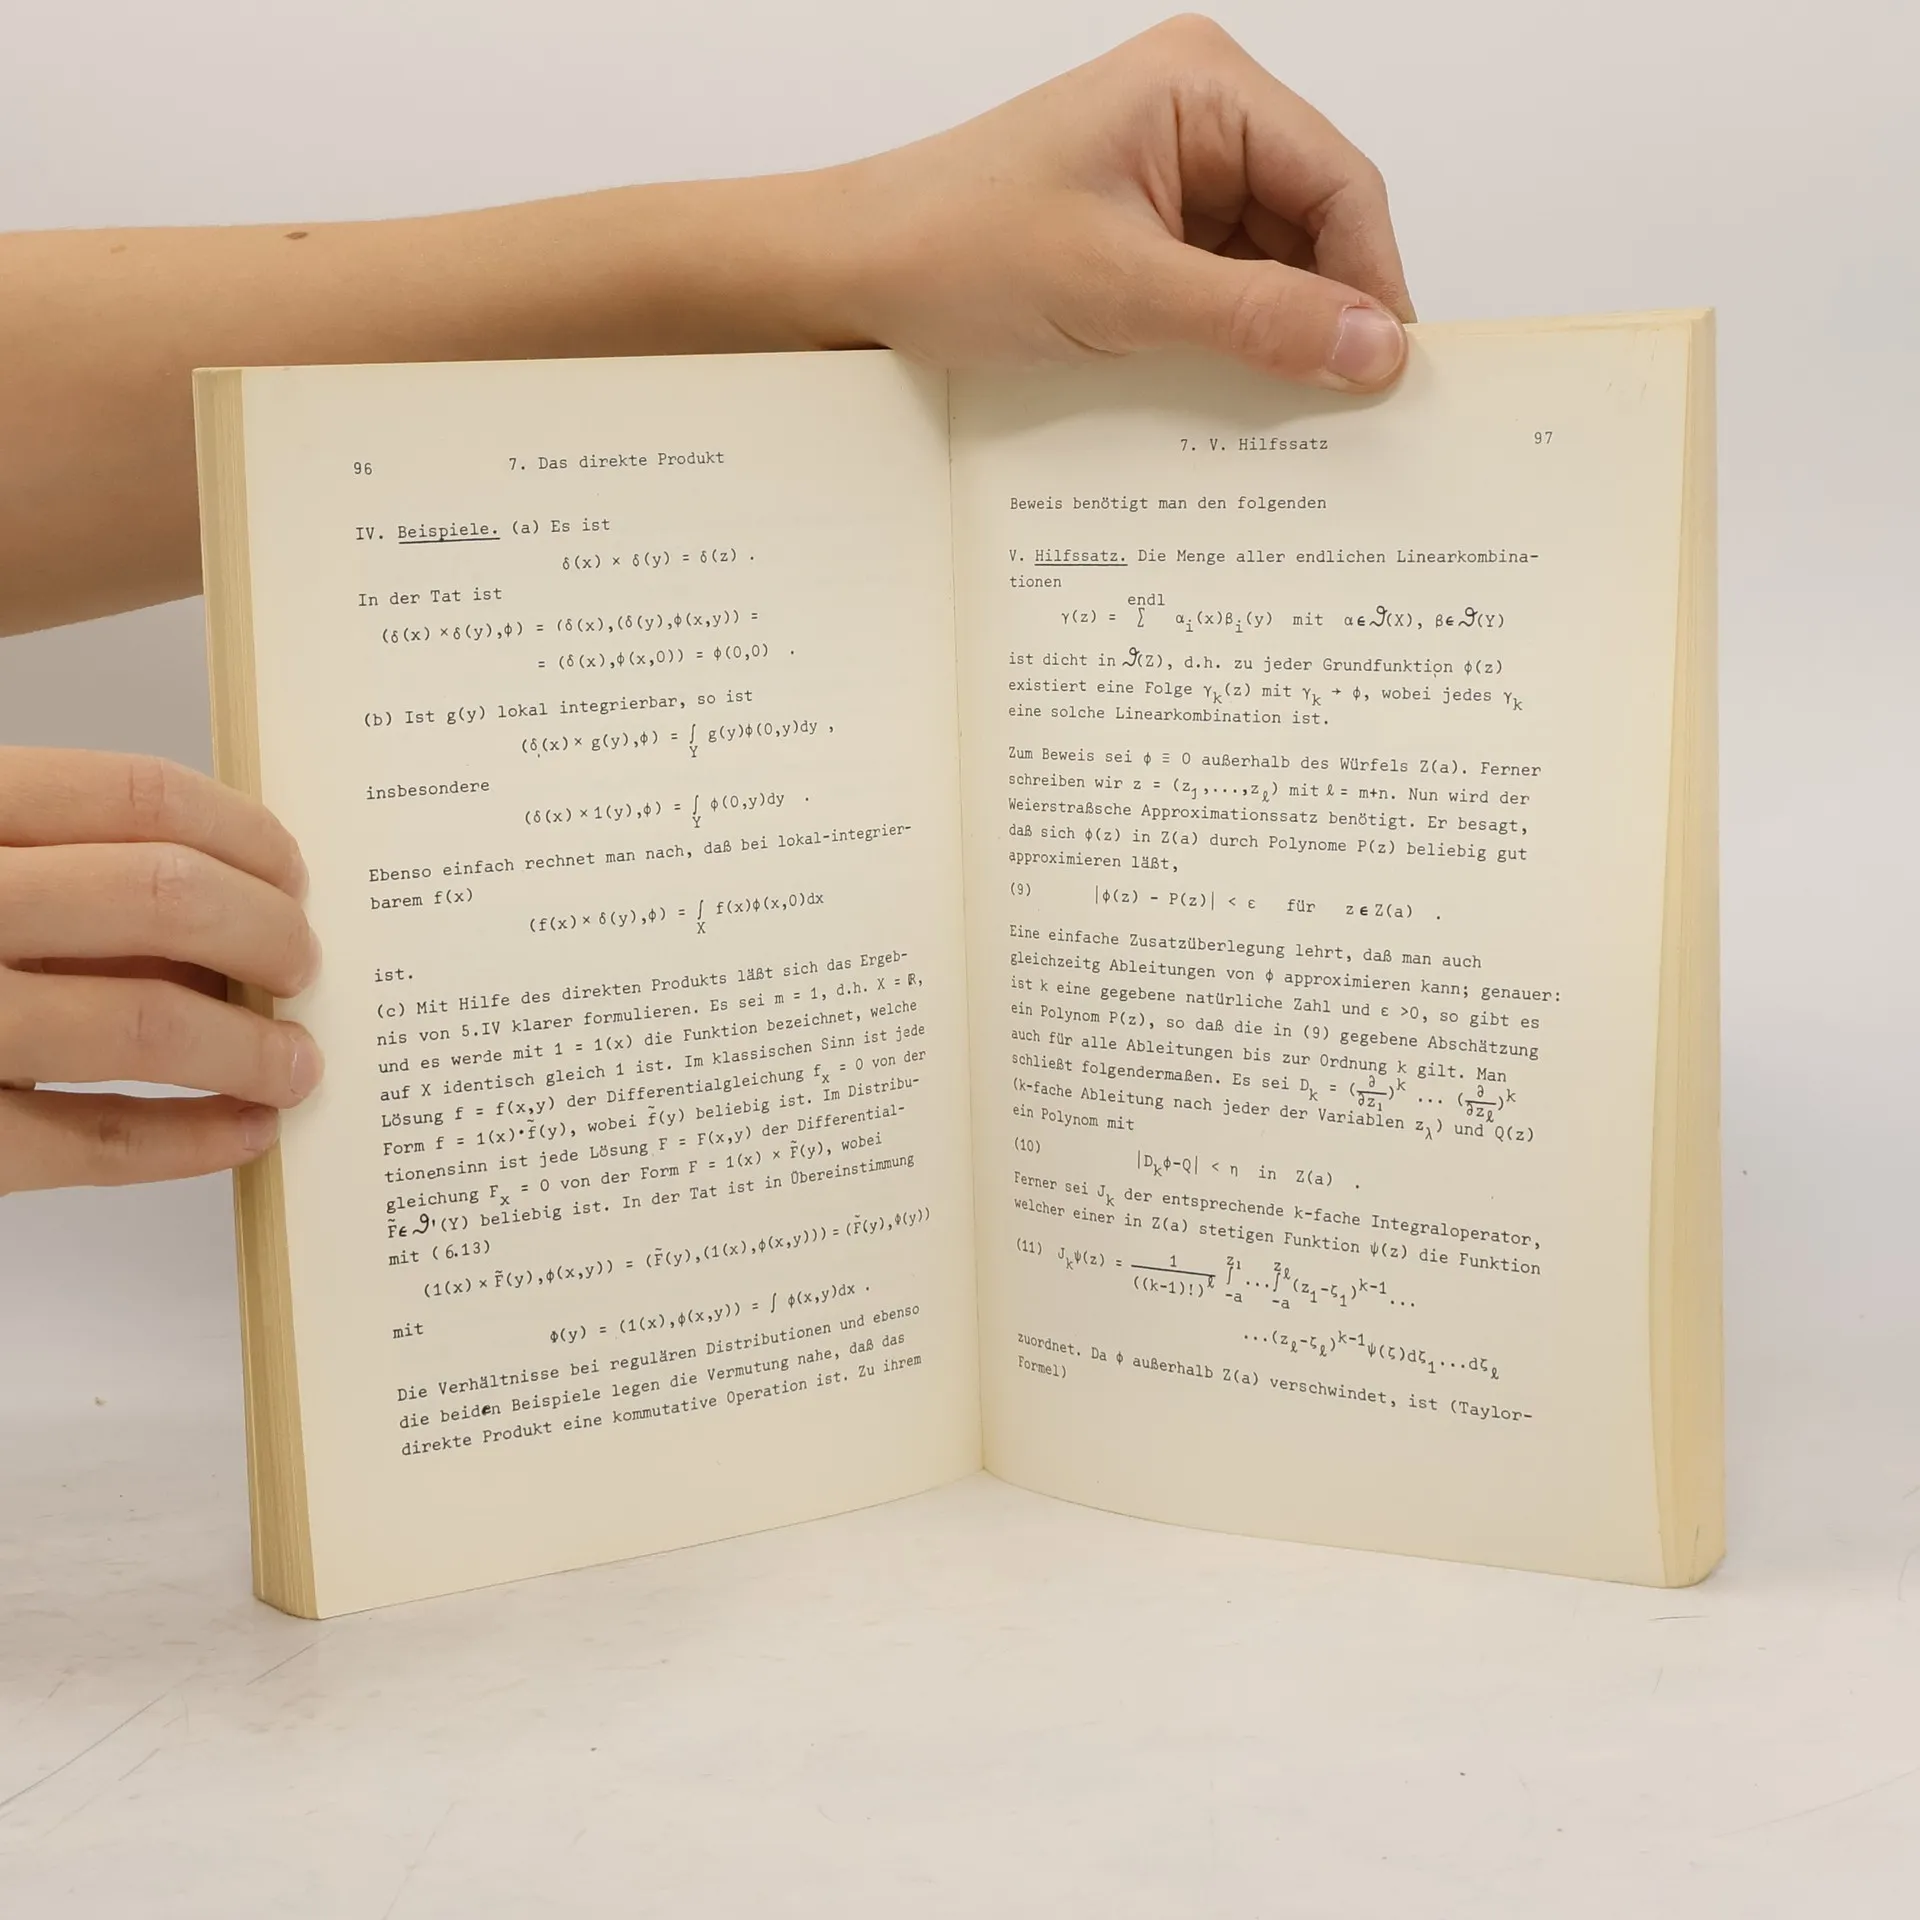 96
7. Das direkte Produkt
IV. Beispiele. (a) Es ist
δ(x) × δ(y) = δ(z) .
In der Tat ist
(δ(x) ×δ(y),ϕ) = (δ(x),(δ(y),ϕ(x,y)) =
= (δ(x),ϕ(x,0)) = ϕ(0,0) .
(b) Ist g(y) lokal integrierbar, so ist
(δ(x)× g(y),ϕ) = ∫_Y g(y)ϕ(0,y)dy ,
insbesondere
(δ(x) × 1(y),ϕ) = ∫_Y ϕ(0,y)dy .
Ebenso einfach rechnet man nach, daß bei lokal-integrier-
barem f(x)
(f(x)× δ(y),ϕ) = ∫_X f(x)ϕ(x,0)dx
ist.
(c) Mit Hilfe des direkten Produkts läßt sich das Ergeb-
nis von 5.IV klarer formulieren. Es sei m = 1, d.h. X = ℝ,
und es werde mit 1 = 1(x) die Funktion bezeichnet, welche
auf X identisch gleich 1 ist. Im klassischen Sinn ist jede
Lösung f = f(x,y) der Differentialgleichung f_x = 0 von der
Form f = 1(x)·f̃(y), wobei f̃(y) beliebig ist. Im Distribu-
tionensinn ist jede Lösung F = F(x,y) der Differential-
gleichung F_x = 0 von der Form F = 1(x) × F̃(y), wobei
F̃ϵ𝒟'(Y) beliebig ist. In der Tat ist in Übereinstimmung
mit (6.13)
(1(x) × F̃(y),ϕ(x,y)) = (F̃(y),(1(x),ϕ(x,y))) = (F̃(y),Φ(y))
mit
Φ(y) = (1(x),ϕ(x,y)) = ∫ ϕ(x,y)dx .
Die Verhältnisse bei regulären Distributionen und ebenso
die beiden Beispiele legen die Vermutung nahe, daß das
direkte Produkt eine kommutative Operation ist. Zu ihrem
7. V. Hilfssatz
97
Beweis benötigt man den folgenden
V. Hilfssatz. Die Menge aller endlichen Linearkombina-
tionen
γ(z) = ∑^endl α_i(x)β_i(y) mit αϵ𝒟(X), βϵ𝒟(Y)
ist dicht in 𝒟(Z), d.h. zu jeder Grundfunktion ϕ(z)
existiert eine Folge γ_k(z) mit γ_k → ϕ, wobei jedes γ_k
eine solche Linearkombination ist.
Zum Beweis sei ϕ ≡ 0 außerhalb des Würfels Z(a). Ferner
schreiben wir z = (z_1,...,z_ℓ) mit ℓ = m+n. Nun wird der
Weierstraßsche Approximationssatz benötigt. Er besagt,
daß sich ϕ(z) in Z(a) durch Polynome P(z) beliebig gut
approximieren läßt,
(9) |ϕ(z) - P(z)| < ε für zϵZ(a) .
Eine einfache Zusatzüberlegung lehrt, daß man auch
gleichzeitg Ableitungen von ϕ approximieren kann; genauer:
ist k eine gegebene natürliche Zahl und ε >0, so gibt es
ein Polynom P(z), so daß die in (9) gegebene Abschätzung
auch für alle Ableitungen bis zur Ordnung k gilt. Man
schließt folgendermaßen. Es sei D_k = (∂/∂z_1)^k ... (∂/∂z_ℓ)^k
(k-fache Ableitung nach jeder der Variablen z_λ) und Q(z)
ein Polynom mit
(10) |D_kϕ-Q| < η in Z(a) .
Ferner sei J_k der entsprechende k-fache Integraloperator,
welcher einer in Z(a) stetigen Funktion ψ(z) die Funktion
(11) J_kψ(z) = 1/((k-1)!)^ℓ ∫_-a^z_1 ... ∫_-a^z_ℓ (z_1-ζ_1)^k-1...
...(z_ℓ-ζ_ℓ)^k-1ψ(ζ)dζ_1...dζ_ℓ
zuordnet. Da ϕ außerhalb Z(a) verschwindet, ist (Taylor-
Formel)